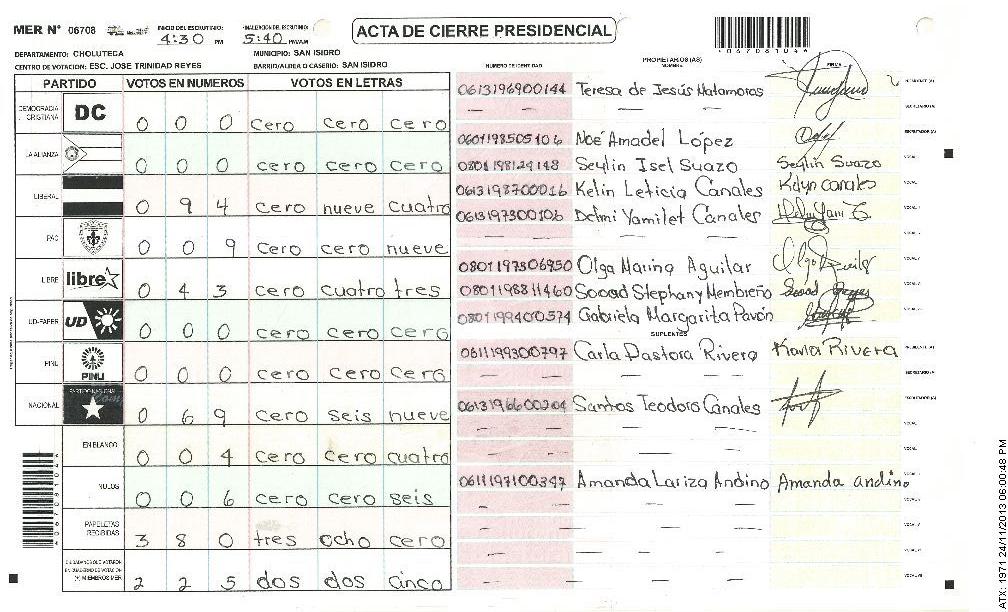 MER Nº 06708 INICIO DEL ESCRUTINIO: 4:30 PM FINALIZACION DEL ESCRUTINIO: 5:40 PM/AM
ACTA DE CIERRE PRESIDENCIAL
DEPARTAMENTO: CHOLUTECA MUNICIPIO: SAN ISIDRO
CENTRO DE VOTACION: ESC. JOSE TRINIDAD REYES BARRIO/ALDEA O CASERIO: SAN ISIDRO
PARTIDO VOTOS EN NUMEROS VOTOS EN LETRAS
DEMOCRACIA CRISTIANA DC 0 0 0 cero cero cero
LA ALIANZA 0 0 0 cero cero cero
LIBERAL 0 9 4 cero nueve cuatro
PAC 0 0 9 cero cero nueve
LIBRE libre 0 4 3 cero cuatro tres
UD-FAPER UD 0 0 0 cero cero cero
PINU PINU 0 0 0 cero cero cero
NACIONAL PARTIDO NACIONAL 0 6 9 cero seis nueve
EN BLANCO 0 0 4 cero cero cuatro
NULOS 0 0 6 cero cero seis
PAPELETAS RECIBIDAS 3 8 0 tres ocho cero
CIUDADANOS QUE VOTARON EN CUADERNO DE VOTACION (+) MIEMBROS MER 2 2 5 dos dos cinco
NUMERO DE IDENTIDAD PROPIETARIOS (AS) NOMBRE FIRMA
0613196900144 Teresa de Jesús Matamoros PRESIDENTE (A)
— — — SECRETARIO (A)
0601198505106 Noé Amadel López ESCRUTADOR (A)
0801198124148 Seylin Isel Suazo Seylin Suazo VOCAL
0613198700016 Kelin Leticia Canales Kelyn canales VOCAL
0613197300106 Delmi Yamilet Canales VOCAL
— — — VOCAL
0801197306950 Olga Marina Aguilar Olga Aguilar VOCAL
0801198811460 Sooad Stephany Membreño VOCAL
0801199400574 Gabriela Margarita Pavón VOCAL
SUPLENTES
0611199300797 Carla Pastora Rivera Karla Rivera PRESIDENTE (A)
— — — SECRETARIO (A)
0613196600204 Santos Teodoro Canales ESCRUTADOR (A)
— — — VOCAL
— — — VOCAL
0611197100347 Amanda Lariza Andino Amanda andino VOCAL
— — — VOCAL
— — — VOCAL
— — — VOCAL
— — — VOCAL
ATX: 1971 24/11/2013 06:00:48 PM